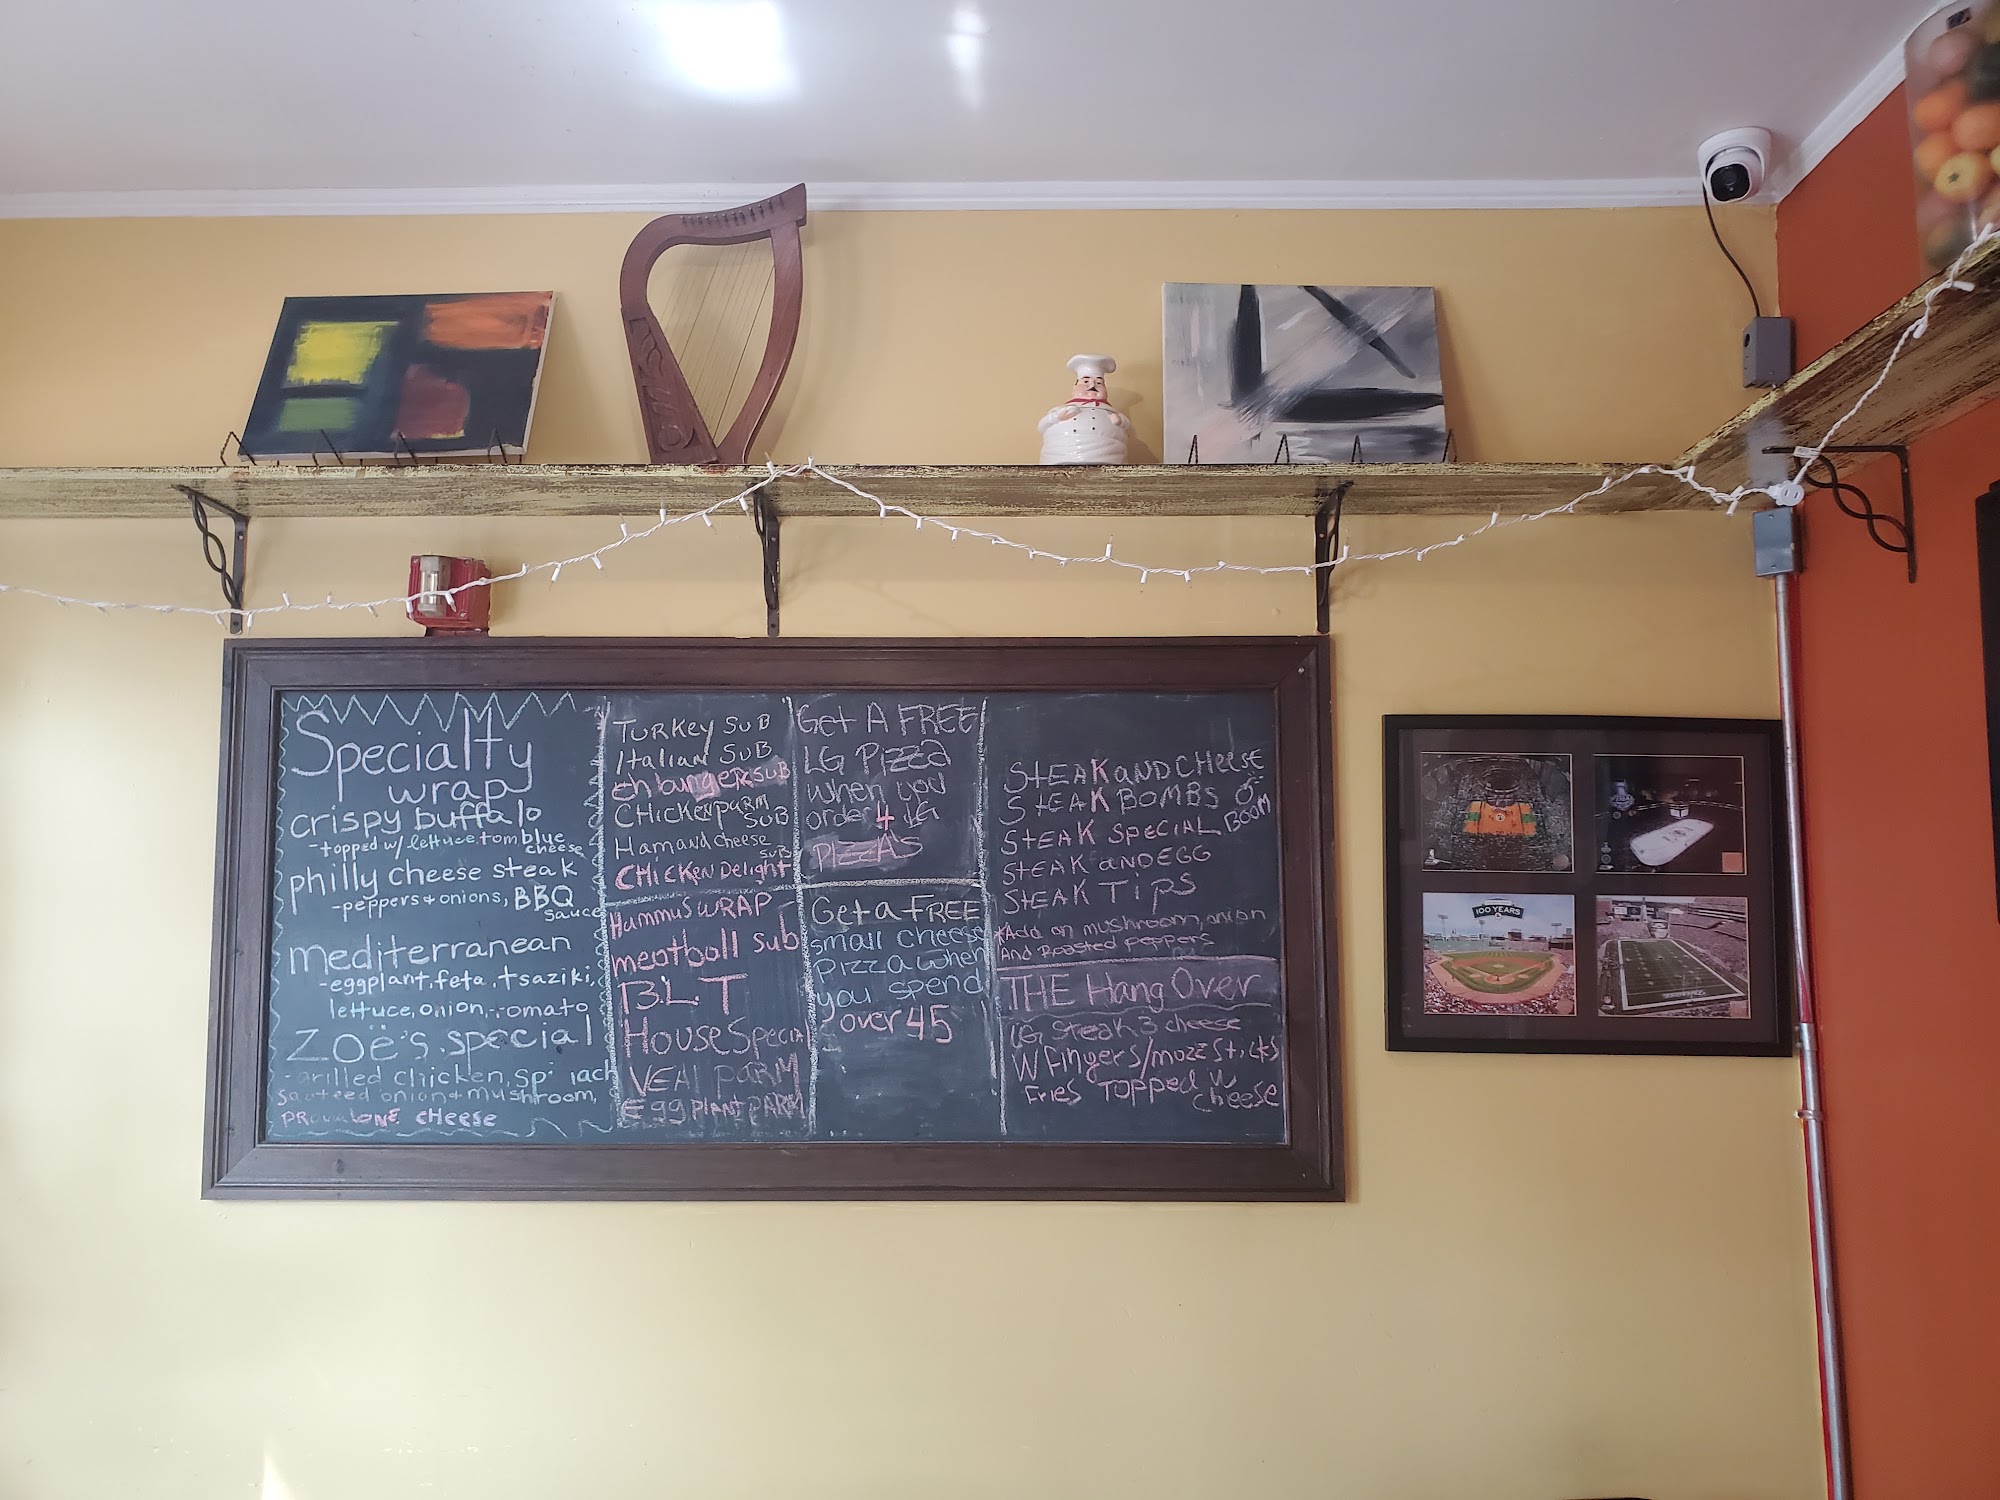 Specialty
wrap
crispy buffalo
-topped w/ lettuce, tom blue
cheese
philly cheese steak
-peppers + onions, BBQ
sauce
mediterranean
-eggplant, feta, tsaziki,
lettuce, onion, tomato
Zoë's special
-grilled chicken, sp iach
sauteed onion + mushroom,
PROVALONE CHEESE
TURKEY SUB
Italian SUB
SUB
CHICKEN PARM
SUB
Ham and cheese
SUB
CHICKEN Delight
Hummus WRAP
meatball sub
B.L.T
House Special
VEAl PARM
Eggplant PARM
Get A FREE
LG Pizza
when you
order 4 LG
PIZZAS
Get a FREE
small cheese
pizza when
you spend
over 45
STEAK AND CHEESE
STEAK BOMBS
BOOM
STEAK SPECIAL
STEAK and EGG
STEAK TiPS
*Add on mushroom, onion
And Roasted peppers
THE HangOver
LG Steak 3 cheese
W fingers/mozz sticks
Fries TOPPED W
cheese
100 YEARS